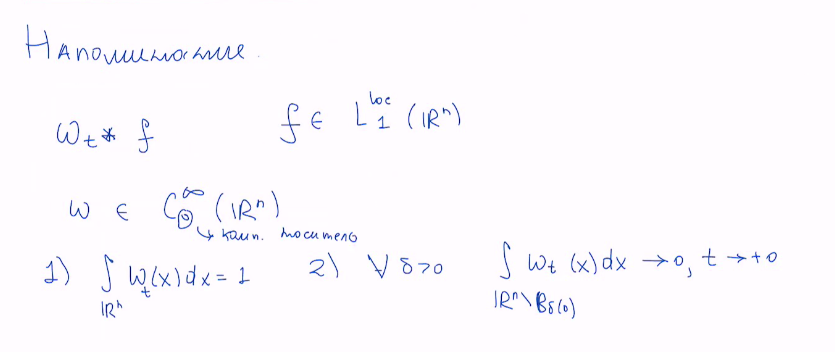 Напоминание.
ω_t * f   f ∈ L_1^{loc} (ℝ^n)
ω ∈ C_0^∞ (ℝ^n)
↳ комп. носитель
1) ∫_{ℝ^n} ω_t(x)dx = 1   2) ∀ δ>0   ∫_{ℝ^n \ B_δ(0)} ω_t (x)dx → 0, t → +0